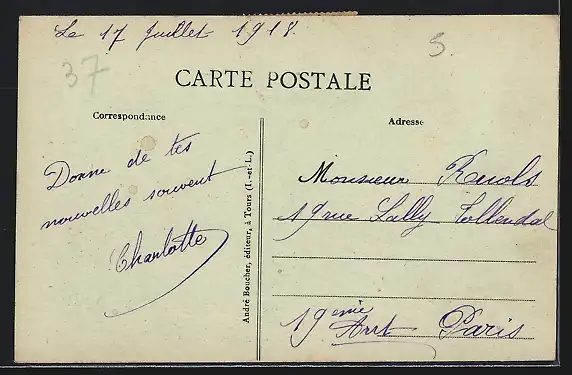 Le 17 Juillet 1918.
37
S
CARTE POSTALE
Correspondance
Adresse
Donne de tes
nouvelles souvent
Charlotte
André Boucher, éditeur, à Tours (I.-et-L.)
Monsieur
19 rue Lally Tollendal
19emie Arrt Paris